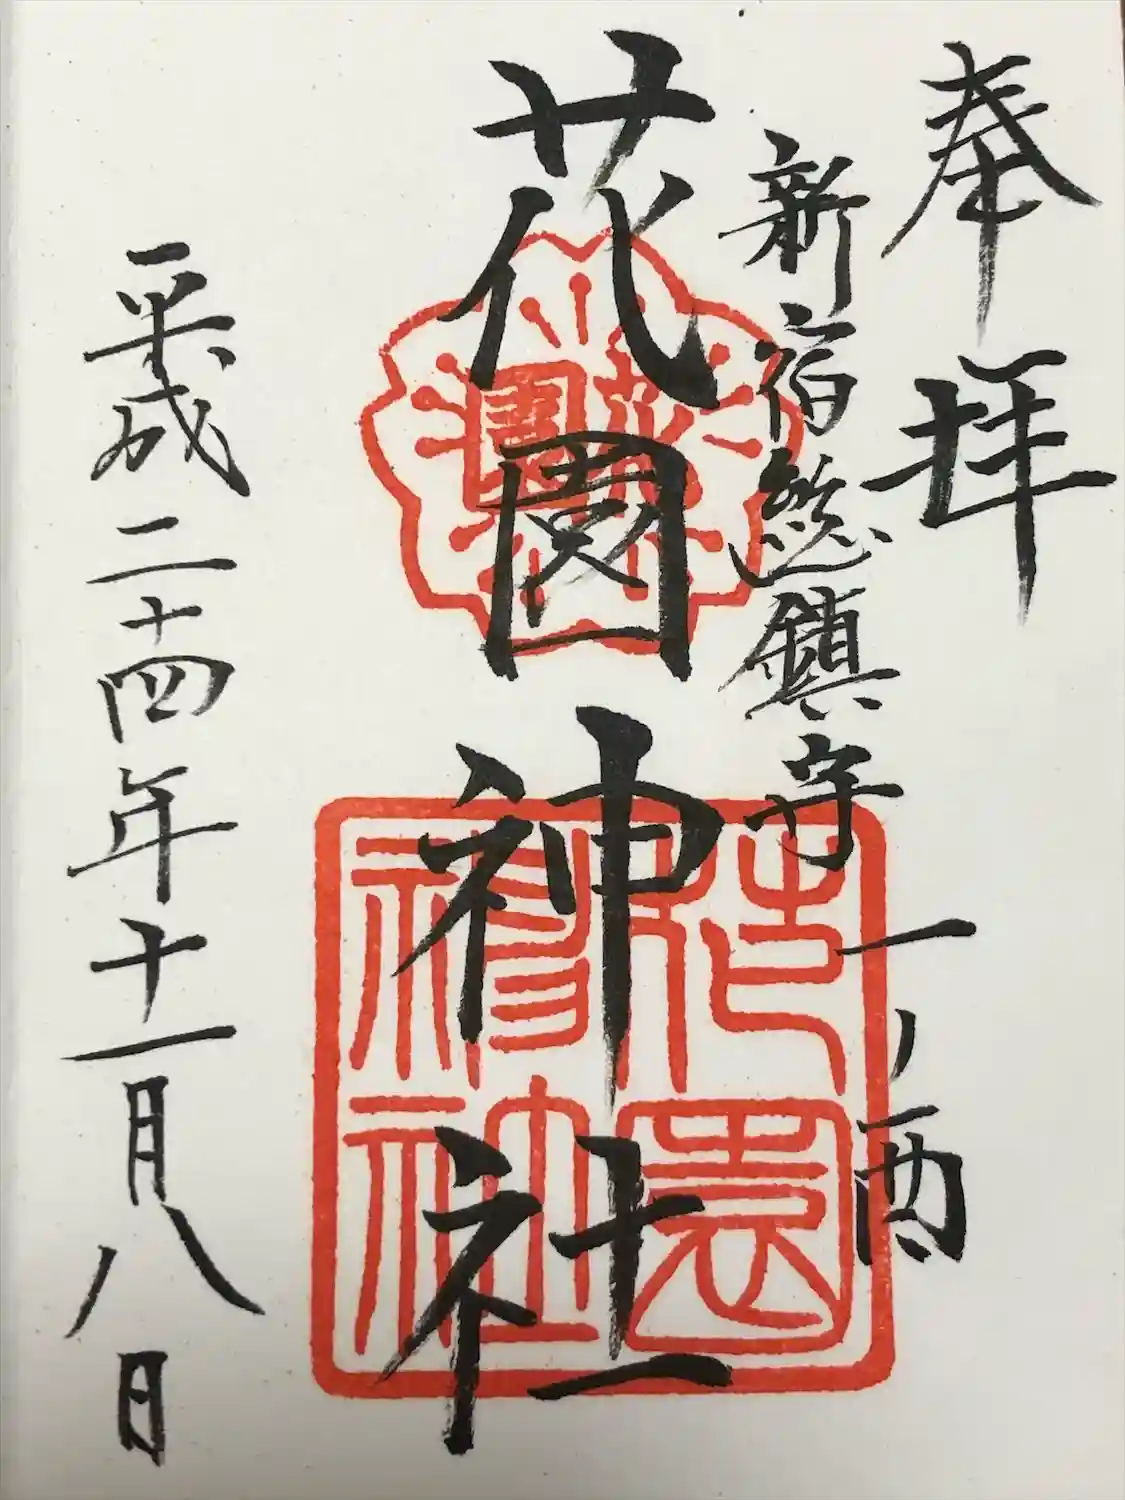 奉拝
一ノ酉
新宿総鎮守
花園神社
平成二十四年十一月八日
花園
神社